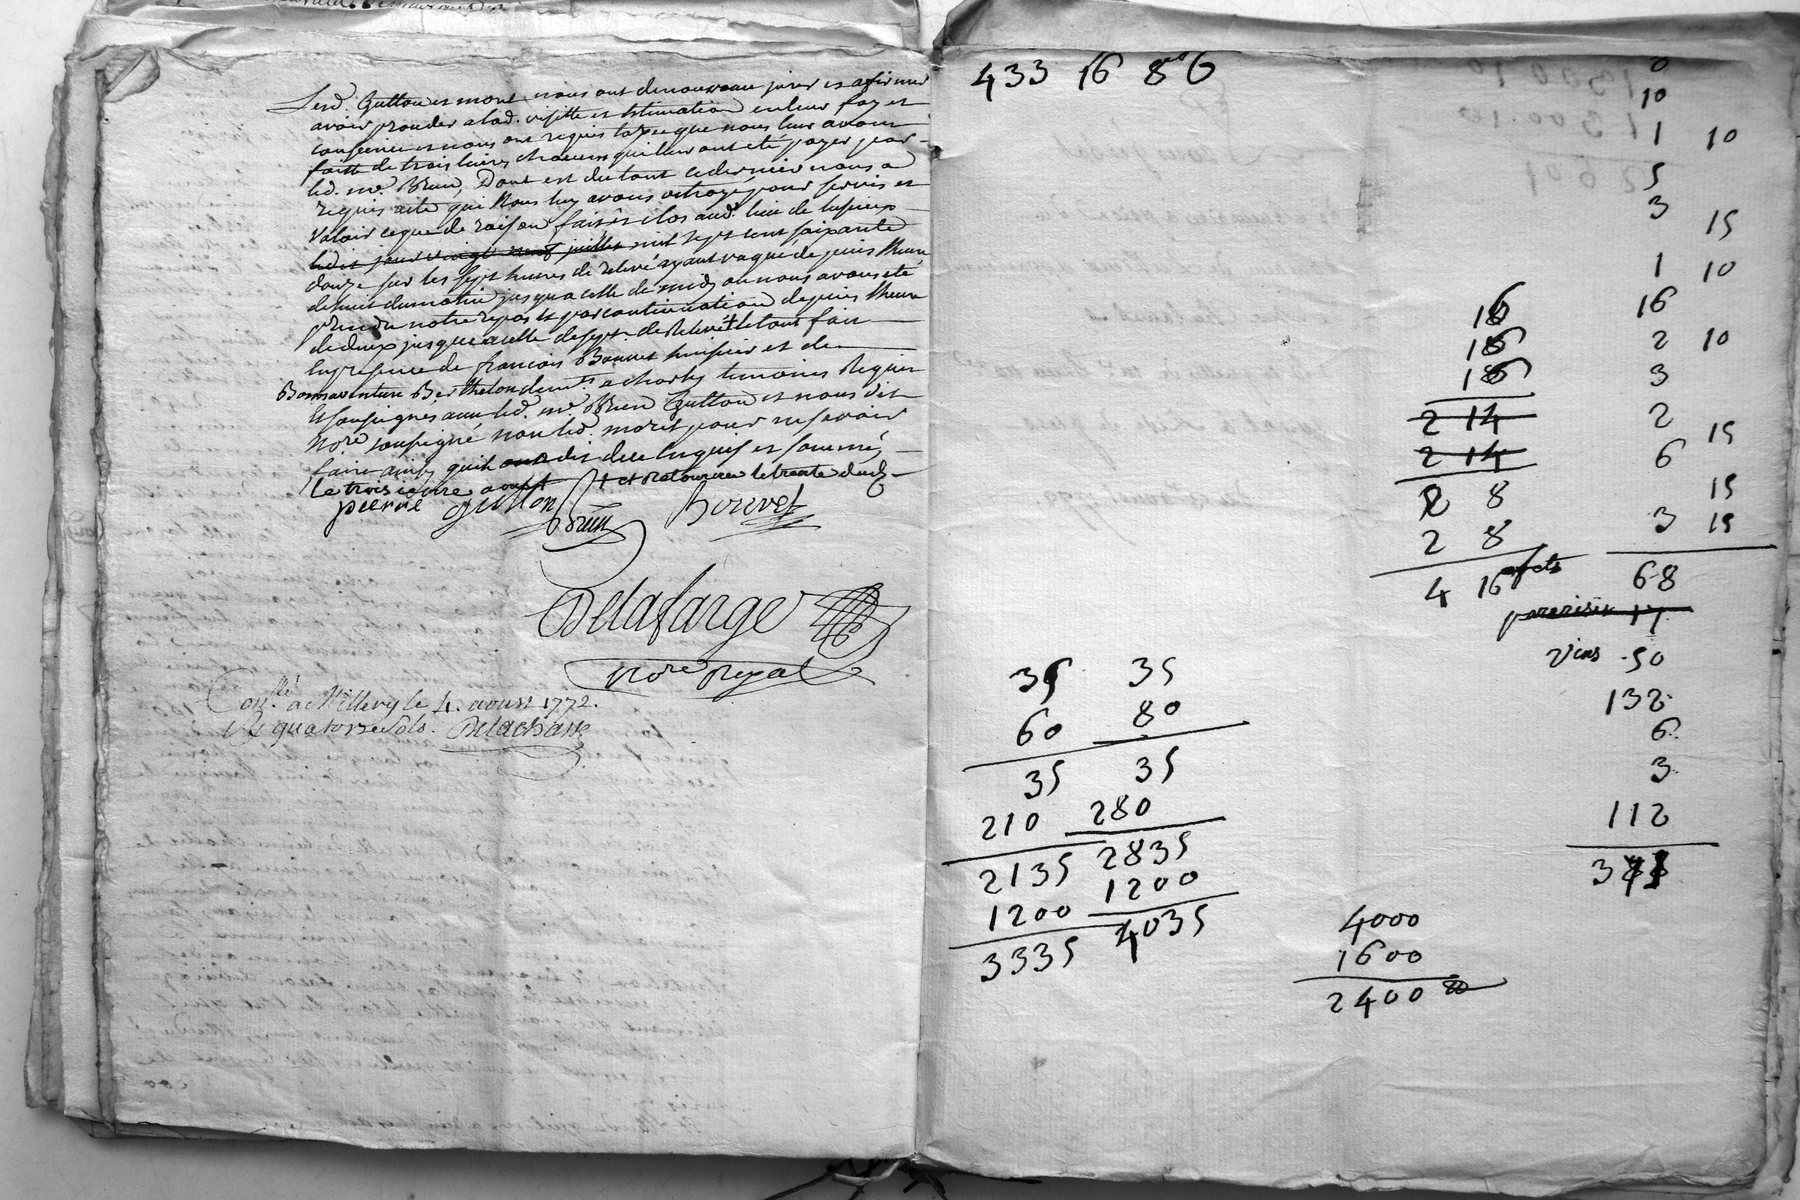 Lesd. Gutton et mont nous ont denouveau juré et afirmé
avoir proceder alad. visitte et Estimation enleur foy et
conscience et nous ont requis taxe que nous leur avons
faitte de trois livres chacun qui leur ont été payez par
led. me. Brun, Dont est du tout ce dernier nous a
requis acte que Nous luy avons octroyé pour servir et
valoir ce que de raison fait et clos aud. lieu de
ledit jour vingt neuf juillet mil sept cent soixante
douze sur les sept heures de relevé ayant vaqué depuis l'heure
de huit du matin jusqu'a celle de midy ou nous avons été
prendre notre repas et par continuation depuis l'heure
de deux jusque a celle de sept de Relevé + le tout fait
en presence de françois Bouvet huissier et de
Bonnaventure Berthelon demt. a charly temoins Requis
Et soussignés avec led. me. Brun Gutton et nous dit
Nore. soussigné non led. mont pour ne savoir
faire ainsy quil a dit de ce enquis et sommé,
Le troisieme aoust + et Retournée le trente dud.
pierre Gutton Brun Bouvet
Delafarge
Nore. Royal
Conllé. a Millery le 4. aoust 1772.
R. quatorze sols. Delachass
433 16 8 6
0
10
1 10
5
3 15
1 10
16
2 10
3
2
15
6
15
3 15
68
17
vins 50
132
6
3
112
16
16
16
2 14
2 14
2 8
2 8
4 16
35 35
60 80
35 35
210 280
2135 2835
1200 1200
3335 4035
4000
1600
2400